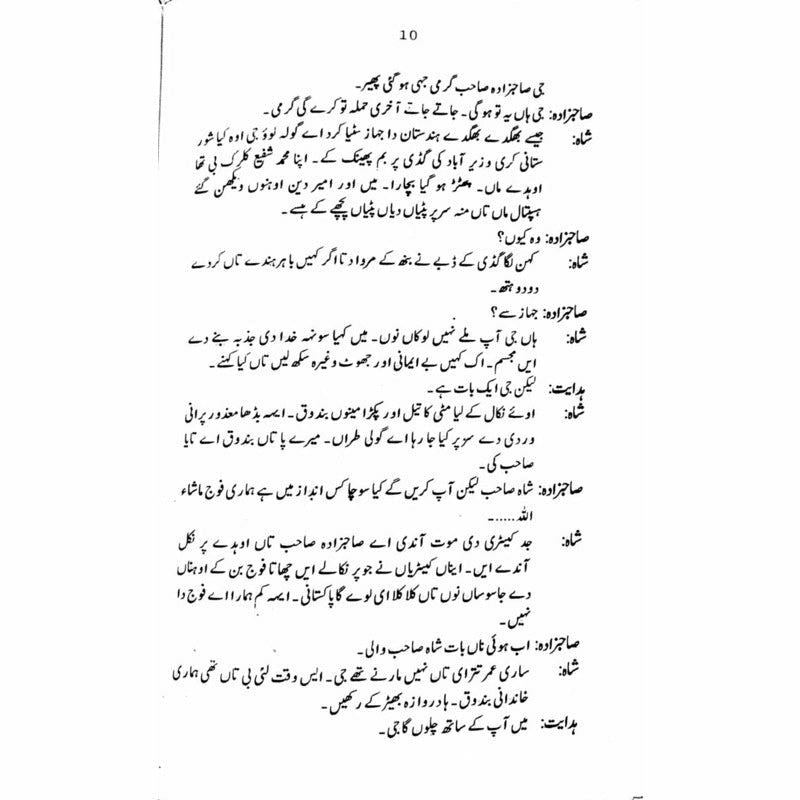 10
جی صاحبزادہ صاحب گرمی جہی ہو گئی پھیر۔
صاحبزادہ: جی ہاں یہ تو ہو گی۔ جاتے جاتے آخری حملہ تو کرے گی گرمی۔
شاہ: جیسے بھگدے بھگدے ہندستان دا جہاز سٹیا کرد اے گولہ لوؤ جی اوہ کیا شور
ستانی کری وزیر آباد کی گڈی پر بم پھینک کے۔ اپنا محمد شفیع کلرک بی تھا
اوہدے ماں۔ پھٹڑ ہو گیا بچارا۔ میں اور امیر دین اوہنوں ویکھن گئے
ہسپتال ماں تاں منہ سر پر پٹیاں دیاں پٹیاں پچھے کے ہسے۔
صاحبزادہ: وہ کیوں؟
شاہ: کہن لگا گڈی کے ڈبے نے بنھ کے مروا دتا اگر کہیں باہر ہندے تاں کردے
دو دو ہتھ۔
صاحبزادہ: جہاز سے؟
شاہ: ہاں جی آپ ملے نہیں لوکاں نوں۔ میں کہیا سونہہ خدا دی جذبہ بنے دے
ایں مجسم۔ اک کہیں بے ایمانی اور جھوٹ وغیرہ سکھ لیں تاں کیا کہنے۔
ہدایت: لیکن جی ایک بات ہے۔
شاہ: اوئے نکال کے لیا مٹی کا تیل اور پکڑا مینوں بندوق۔ ایہہ بڈھا معذور پرانی
وردی دے سر پر کیا جا رہا اے گولی طراں۔ میرے پا تاں بندوق اے تایا
صاحب کی۔
صاحبزادہ: شاہ صاحب لیکن آپ کریں گے کیا سوچا کس انداز میں ہے ہماری فوج ماشاء
اللہ.....۔
شاہ: جد کیسٹری دی موت آندی اے صاحبزادہ صاحب تاں اوہدے پر نکل
آندے ایں۔ ایناں کیٹریاں نے جو پر نکالے ایں چھاتا فوج بن کے اوہناں
دے جاسوساں نوں تاں کلا کلا ای لوے گا پاکستانی۔ ایہہ کم ہمارا اے فوج دا
نہیں۔
صاحبزادہ: اب ہوئی ناں بات شاہ صاحب والی۔
شاہ: ساری عمر تترای تاں نہیں مارنے تھے جی۔ ایس وقت لئی بی تاں تھی ہماری
خاندانی بندوق۔ ہا دروازہ بھیڑ کے رکھیں۔
ہدایت: میں آپ کے ساتھ چلوں گا جی۔